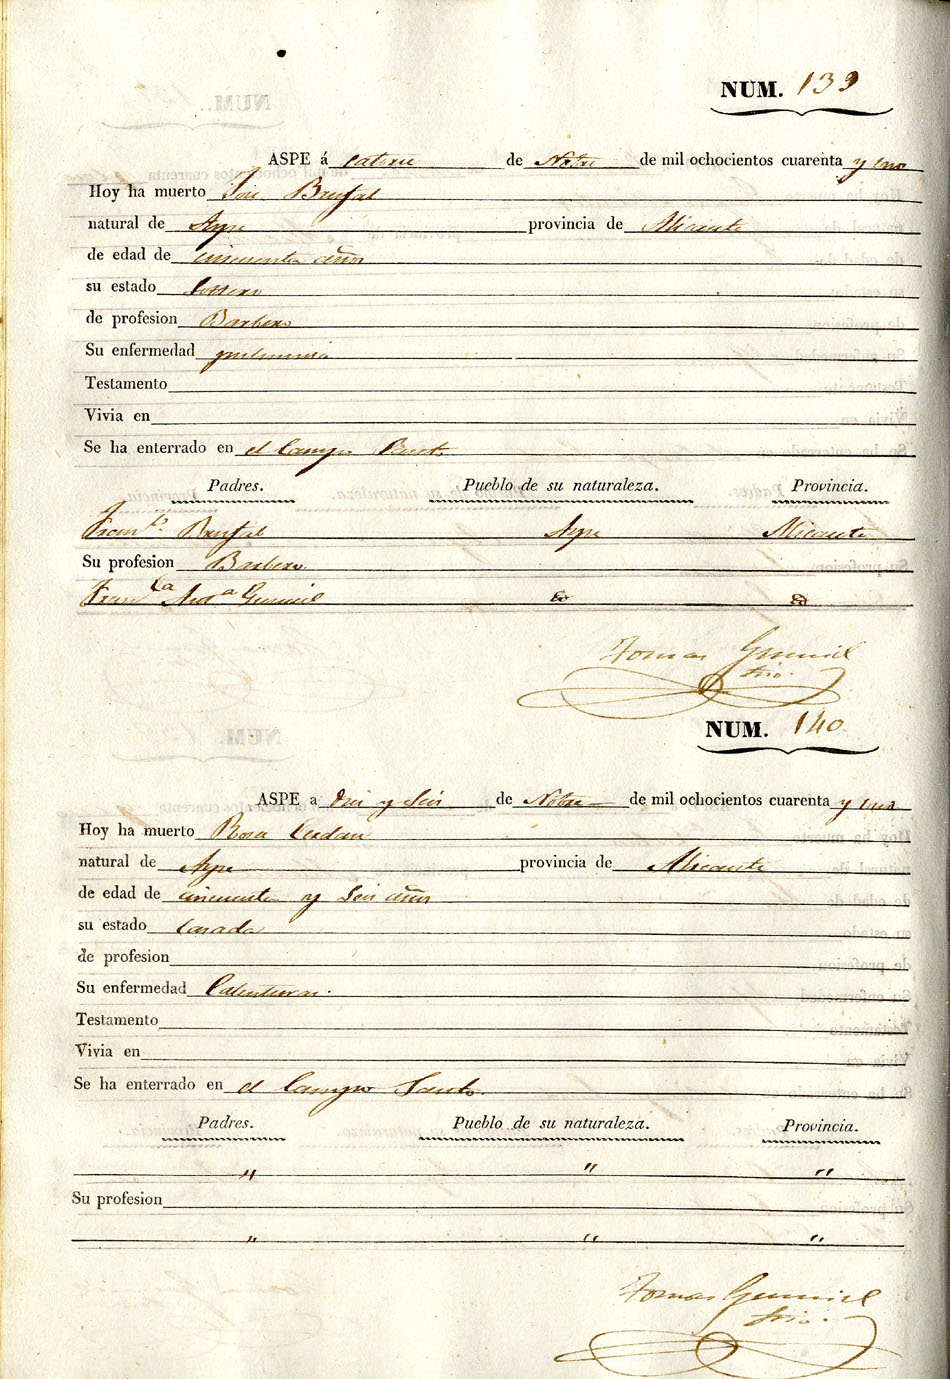 NUM. 139
ASPE á catorce de Nobre de mil ochocientos cuarenta y uno
Hoy ha muerto José Brufal
natural de Aspe provincia de Alicante
de edad de cincuenta años
su estado Soltero
de profesion Barbero
Su enfermedad pulmonia
Testamento
Vivia en
Se ha enterrado en el Campo Santo
Padres. Pueblo de su naturaleza. Provincia.
Franco Brufal Aspe Alicante
Su profesion Barbero
Franca Gumiel
Tomas Gumiel
Srio.
NUM. 140
ASPE a diez y Seis de Nobre de mil ochocientos cuarenta y uno
Hoy ha muerto Rosa Cerdan
natural de Aspe provincia de Alicante
de edad de cincuenta y Seis años
su estado Casada
de profesion
Su enfermedad Calenturas.
Testamento
Vivia en
Se ha enterrado en el Campo Santo.
Padres. Pueblo de su naturaleza. Provincia.
" " "
Su profesion
" " "
Tomas Gumiel
Srio.